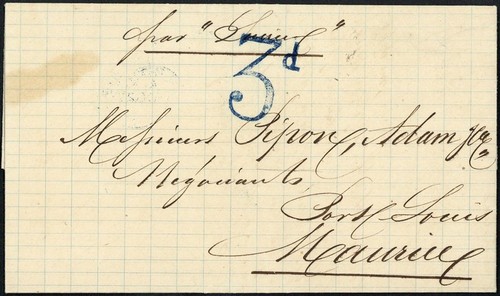 par "
3d
Messieurs Pipon, Adam & Co
Négociants
Port Louis
Maurice